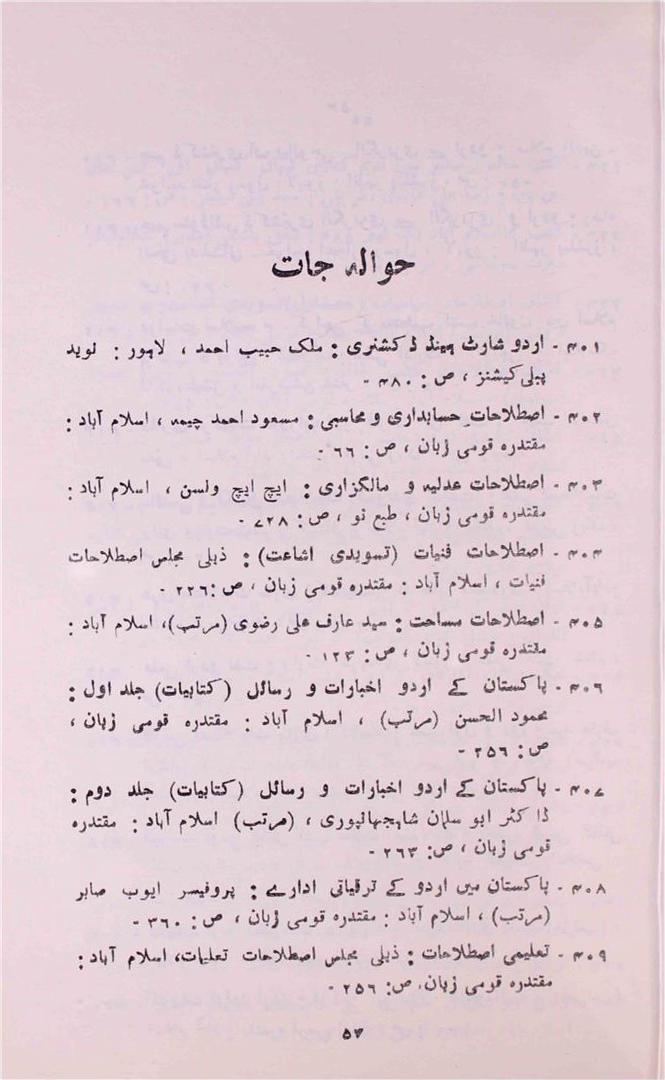 حوالہ جات
۴۰۱ - اردو شارٹ ہینڈ ڈکشنری : ملک حبیب احمد ، لاہور : نوید
پبلی کیشنز ، ص : ۴۸۰ -
۴۰۲ - اصطلاحات حسابداری و محاسبی : مسعود احمد چیمہ ، اسلام آباد :
مقتدرہ قومی زبان ، ص : ۶۶ -
۴۰۳ - اصطلاحات عدلیہ و مالگزاری : ایچ ایچ ولسن ، اسلام آباد :
مقتدرہ قومی زبان ، طبع نو ، ص : ۷۲۸ -
۴۰۴ - اصطلاحات فنیات (تسویدی اشاعت) : ذیلی مجلس اصطلاحات
فنیات ، اسلام آباد : مقتدرہ قومی زبان ، ص : ۲۲۶ -
۴۰۵ - اصطلاحات مساحت : سید عارف علی رضوی (مرتب)، اسلام آباد :
مقتدرہ قومی زبان ، ص : ۱۲۳ -
۴۰۶ - پاکستان کے اردو اخبارات و رسائل (کتابیات) جلد اول :
محمود الحسن (مرتب) ، اسلام آباد : مقتدرہ قومی زبان ،
ص : ۲۵۶ -
۴۰۷ - پاکستان کے اردو اخبارات و رسائل (کتابیات) جلد دوم :
ڈاکٹر ابو سلمان شاہجہانپوری ، (مرتب) اسلام آباد : مقتدرہ
قومی زبان ، ص : ۲۶۳ -
۴۰۸ - پاکستان میں اردو کے ترقیاتی ادارے : پروفیسر ایوب صابر
(مرتب) ، اسلام آباد : مقتدرہ قومی زبان ، ص : ۳۶۰ -
۴۰۹ - تعلیمی اصطلاحات : ذیلی مجلس اصطلاحات تعلیمات، اسلام آباد :
مقتدرہ قومی زبان، ص : ۲۵۶ -
۵۴